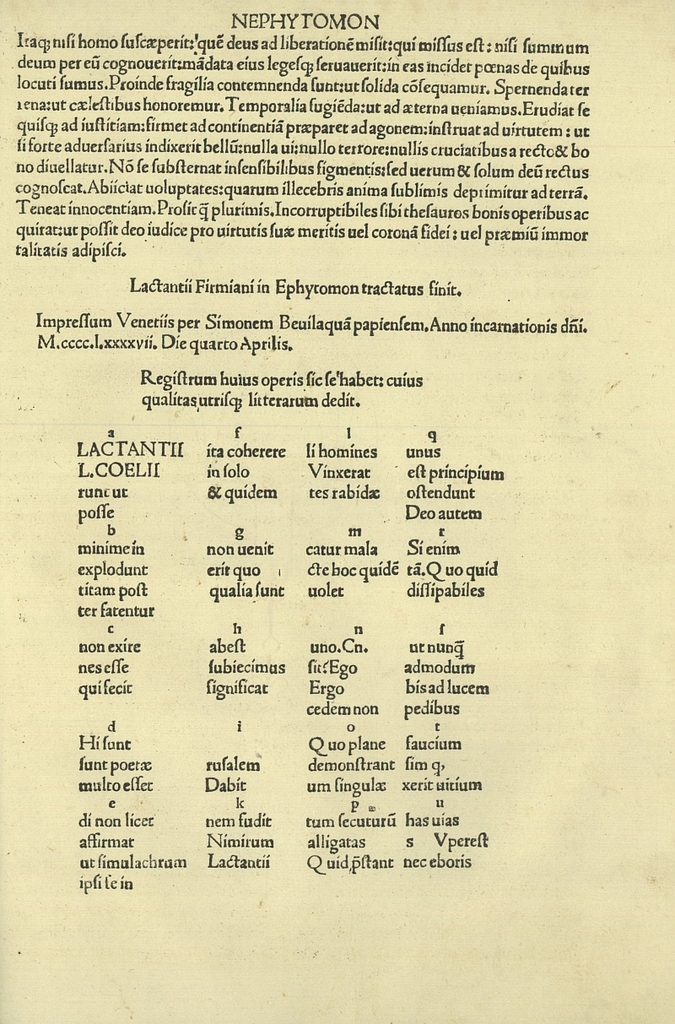 NEPHYTOMON
Itaq; nisi homo suscæperit: quē deus ad liberationē misit: qui missus est: nisi summum
deum per eū cognouerit: mādata eius legesq; seruauerit: in eas incidet pœnas de quibus
locuti sumus. Proinde fragilia contemnenda sunt: ut solida cōsequamur. Spernenda ter
rena: ut cælestibus honoremur. Temporalia fugiēda: ut ad æterna ueniamus. Erudiat se
quisq; ad iustitiam: firmet ad continentiā præparet ad agonem: instruat ad uirtutem: ut
si forte aduersarius indixerit bellū: nulla ui: nullo terrore: nullis cruciatibus a recto & bo
no diuellatur. Nō se substernat insensibilibus figmentis: sed uerum & solum deū rectus
cognoscat. Abiiciat uoluptates: quarum illecebris anima sublimis deprimitur ad terrā.
Teneat innocentiam. Prosit q̄ plurimis. Incorruptibiles sibi thesauros bonis operibus ac
quirat: ut possit deo iudice pro uirtutis suæ meritis uel coronā fidei: uel præmiū immor
talitatis adipisci.
Lactantii Firmiani in Ephytomon tractatus finit.
Impressum Venetiis per Simonem Beuilaquā papiensem. Anno incarnationis dn̄i.
M.cccc.Lxxxxvii. Die quarto Aprilis.
Registrum huius operis sic se habet: cuius
qualitas utrisq; litterarum dedit.
a f l q
LACTANTII ita coherere li homines unus
L.COELII in solo Vinxerat est principium
runt ut & quidem tes rabidæ ostendunt
posse Deo autem
b g m r
minime in non uenit catur mala Si enim
explodunt erit quo cte hoc quidē tā. Quo quid
titam post qualia sunt uolet dissipabiles
ter fatentur
c h n s
non exire abest uno. Cn. ut nunq̄
nes esse subiecimus sit? Ego admodum
qui fecit significat Ergo bis ad lucem
cedem non pedibus
d i o t
Hi sunt Quo plane faucium
sunt poetæ rusalem demonstrant sim q,
multo esset Dabit um singulæ xerit uitium
e k p u
di non licet nem fudit tum secuturū has uias
affirmat Nimirum alligatas s Vperest
ut simulachrum Lactantii Quid p̄stant nec eboris
ipsi se in